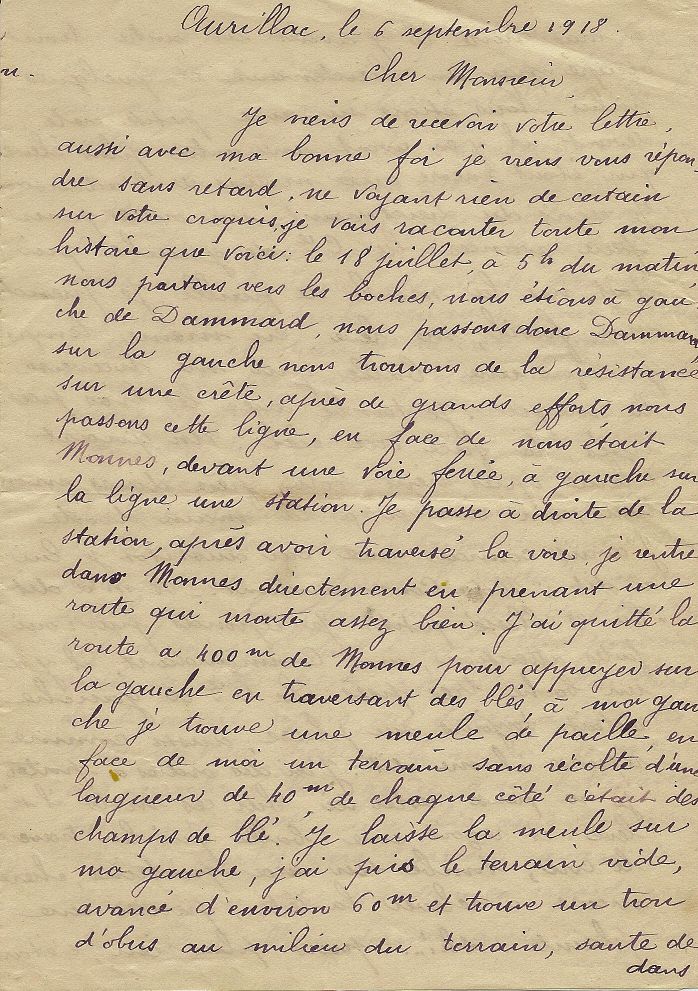 Aurillac, le 6 septembre 1918.
u.
cher Monsieur,
Je viens de recevoir votre lettre,
aussi avec ma bonne foi je viens vous répon-
dre sans retard, ne voyant rien de certain
sur votre croquis, je vais raconter toute mon
histoire que voici : le 18 juillet, à 5h du matin
nous partons vers les boches, nous étions à gau
che de Dammard, nous passons donc Dammard
sur la gauche nous trouvons de la résistance
sur une crête, après de grands efforts nous
passons cette ligne, en face de nous était
Monnes, devant une voie ferrée, à gauche sur
la ligne une station. Je passe à droite de la
station, après avoir traversé la voie je rentre
dans Monnes directement en prenant une
route qui monte assez bien. J'ai quitté la
route a 400m de Monnes pour appuyer sur
la gauche en traversant des blés, à ma gau
che je trouve une meule de paille, en
face de moi un terrain sans récolte d'une
largueur de 40m, de chaque côté c'était des
champs de blé. Je laisse la meule sur
ma gauche, j'ai pris le terrain vide,
avancé d'environ 60m et trouve un trou
d'obus au milieu du terrain, saute de
dans